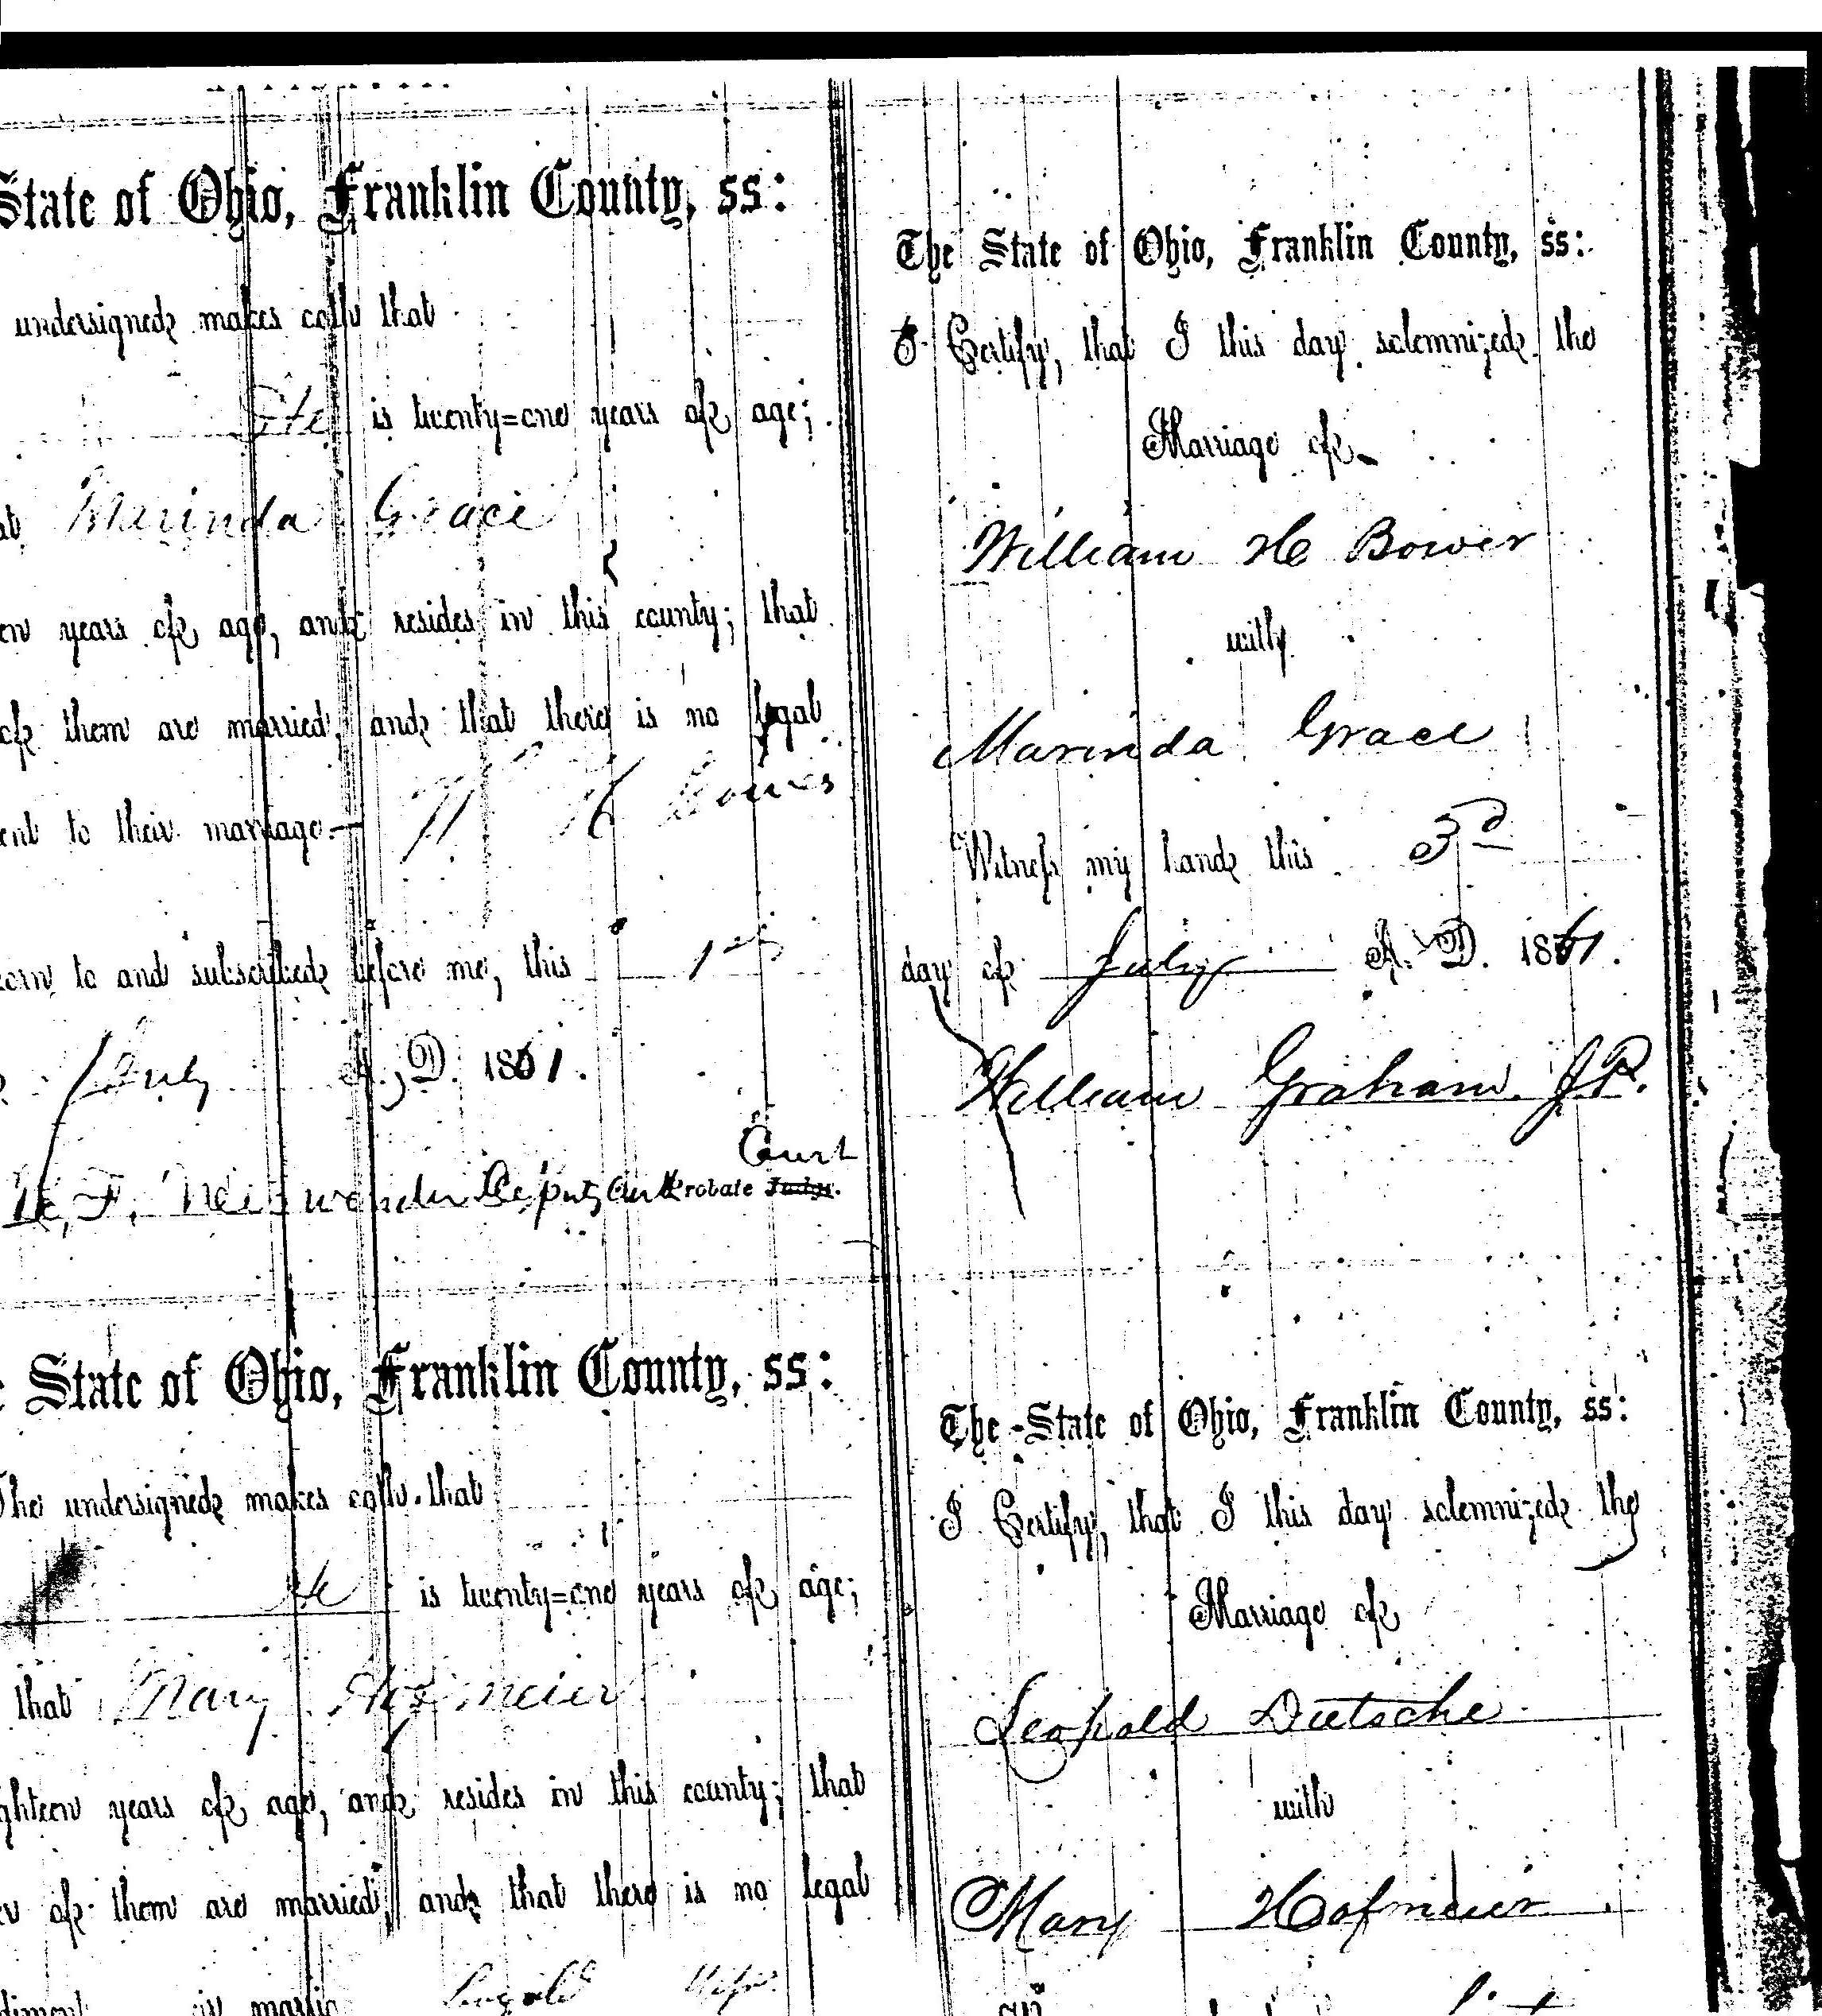 State of Ohio, Franklin County, ss:
undersigned makes oath that
He is twenty=one years of age;
Marinda Grace
years of age, and resides in this county; that
of them are married, and that there is no legal
to their marriage.— W H Bower
to and subscribed before me, this 1st
July A. D. 1861.
F. Neiswender Deputy Clerk Probate Judge.
Court
The State of Ohio, Franklin County, ss:
I Certify, that I this day solemnized the
Marriage of
William H Bower
with
Marinda Grace
Witness my hand this 3d
day of July A. D. 1861.
William Graham. J.P.
State of Ohio, Franklin County, ss:
The undersigned makes oath that
He is twenty=one years of age;
that Mary Hofmeier
years of age, and resides in this county; that
of them are married, and that there is no legal
Leopold
The State of Ohio, Franklin County, ss:
I Certify, that I this day solemnized the
Marriage of
Leopold Dietsche
with
Mary Hofmeier